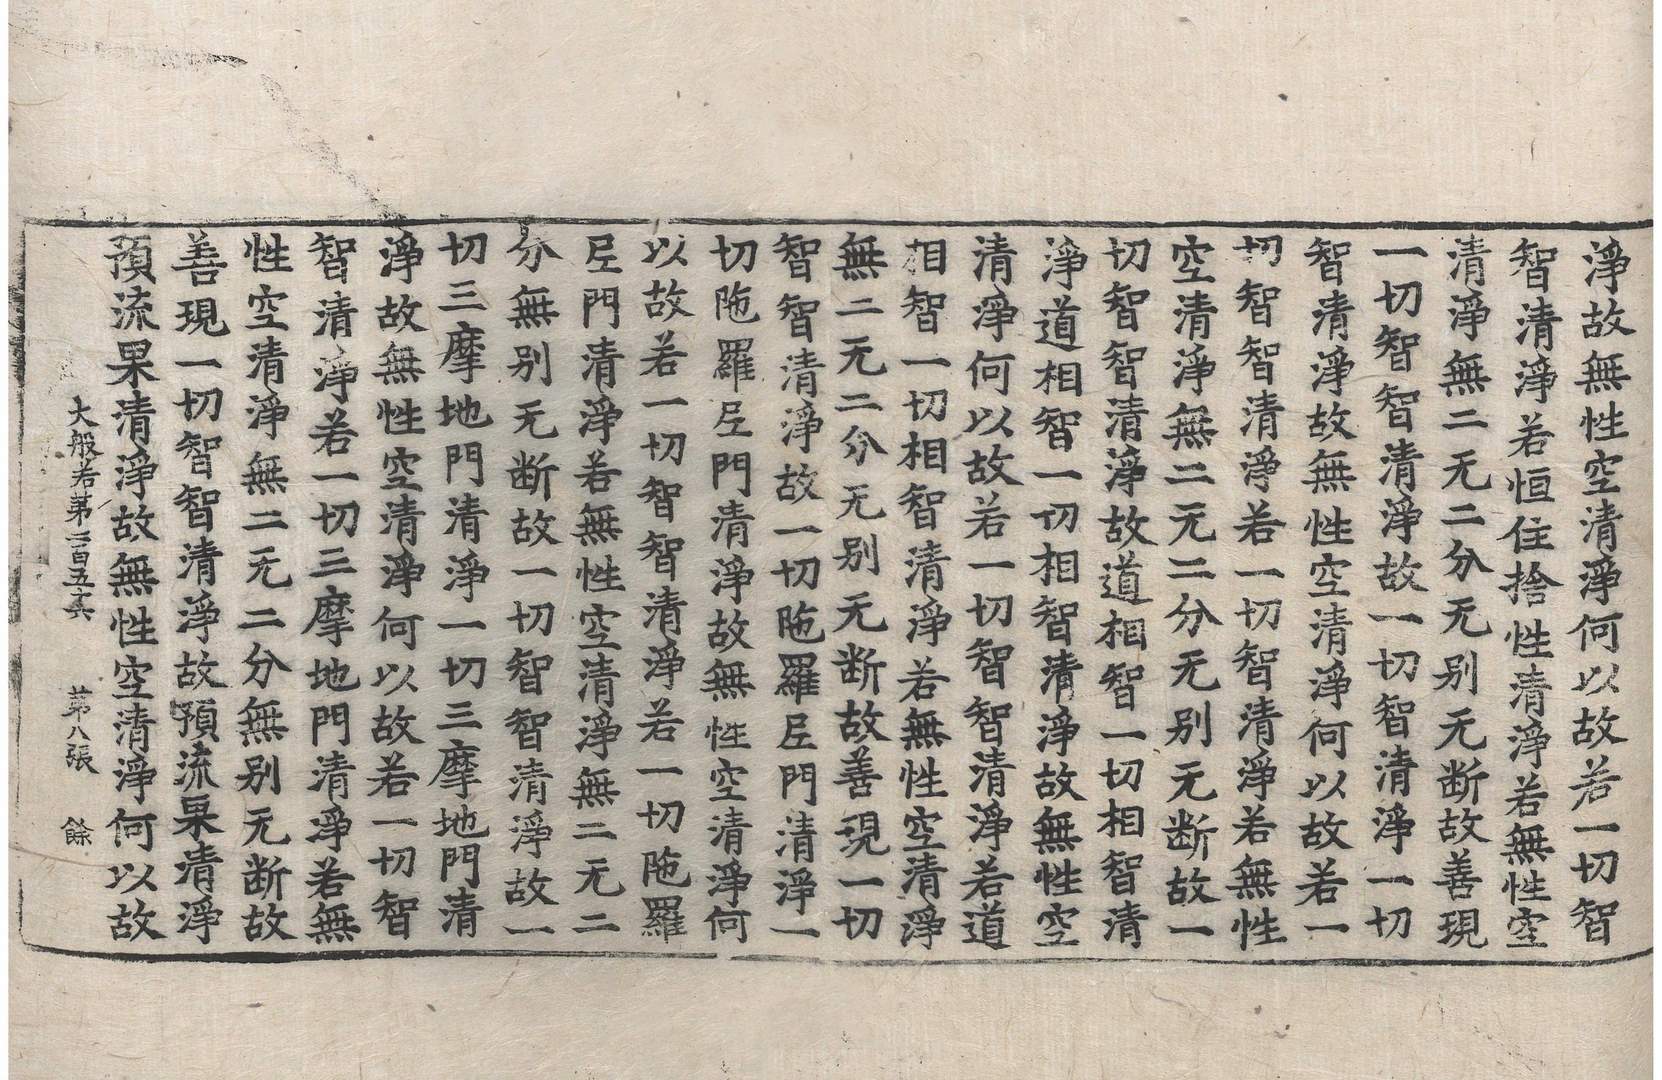 淨故無性空清淨何以故若一切智
智清淨若恒住捨性清淨若無性空
清淨無二无二分无别无断故善現
一切智智清淨故一切智清淨一切
智清淨故無性空清淨何以故若一
切智智清淨若一切智清淨若無性
空清淨無二无二分无别无断故一
切智智清淨故道相智一切相智清
淨道相智一切相智清淨故無性空
清淨何以故若一切智智清淨若道
相智一切相智清淨若無性空清淨
無二无二分无别无断故善現一切
智智清淨故一切陁羅尼門清淨一
切陁羅尼門清淨故無性空清淨何
以故若一切智智清淨若一切陁羅
尼門清淨若無性空清淨無二无二
分無别无断故一切智智清淨故一
切三摩地門清淨一切三摩地門清
淨故無性空清淨何以故若一切智
智清淨若一切三摩地門清淨若無
性空清淨無二无二分無别无断故
善現一切智智清淨故預流果清淨
預流果清淨故無性空清淨何以故
大般若第二百五十六 第八張 餘